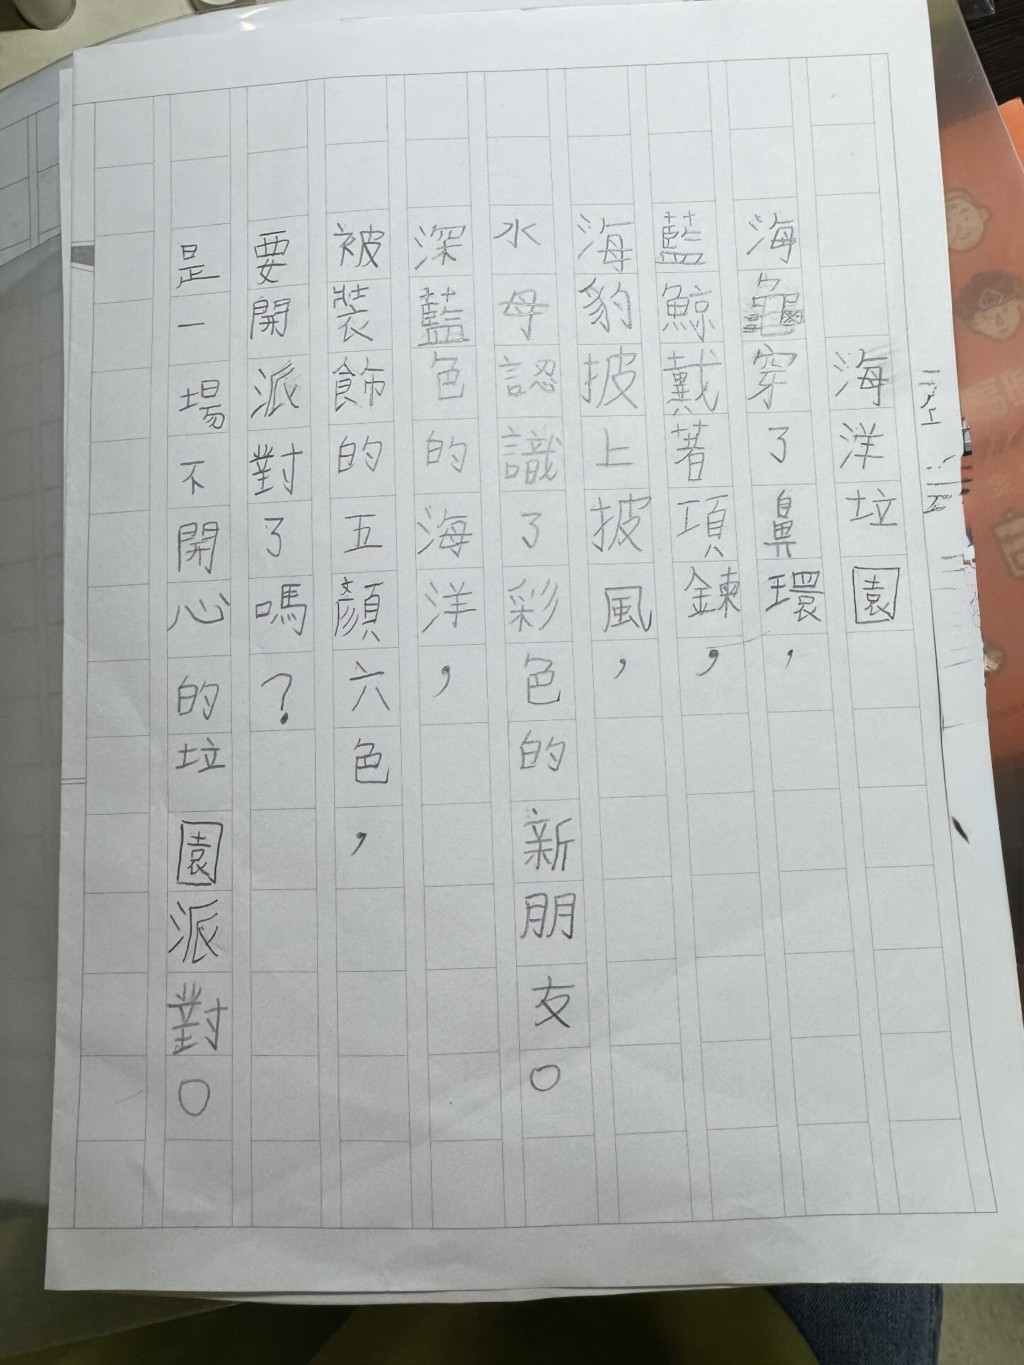 海洋垃園
海龜穿了鼻環，
藍鯨戴著項鍊，
海豹披上披風，
水母認識了彩色的新朋友。
深藍色的海洋，
被裝飾的五顏六色，
要開派對了嗎？
是一場不開心的垃園派對。